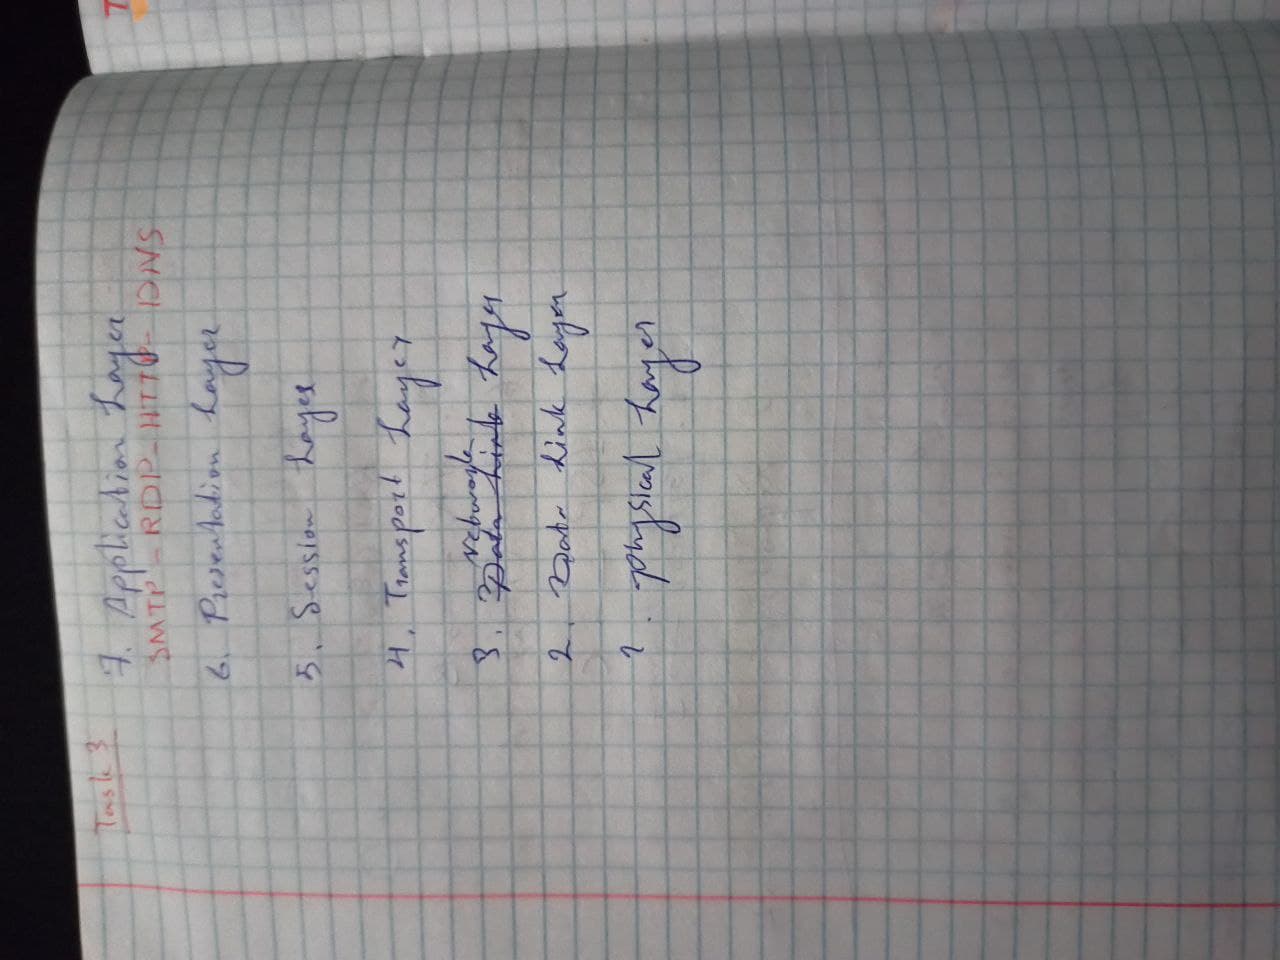 Task 3
7. Application Layer
SMTP - RDP - HTTP - DNS
6. Presentation Layer
5. Session Layer
4. Transport Layer
Network
3. Data Link Layer
2. Data Link Layer
1. physical Layer
T